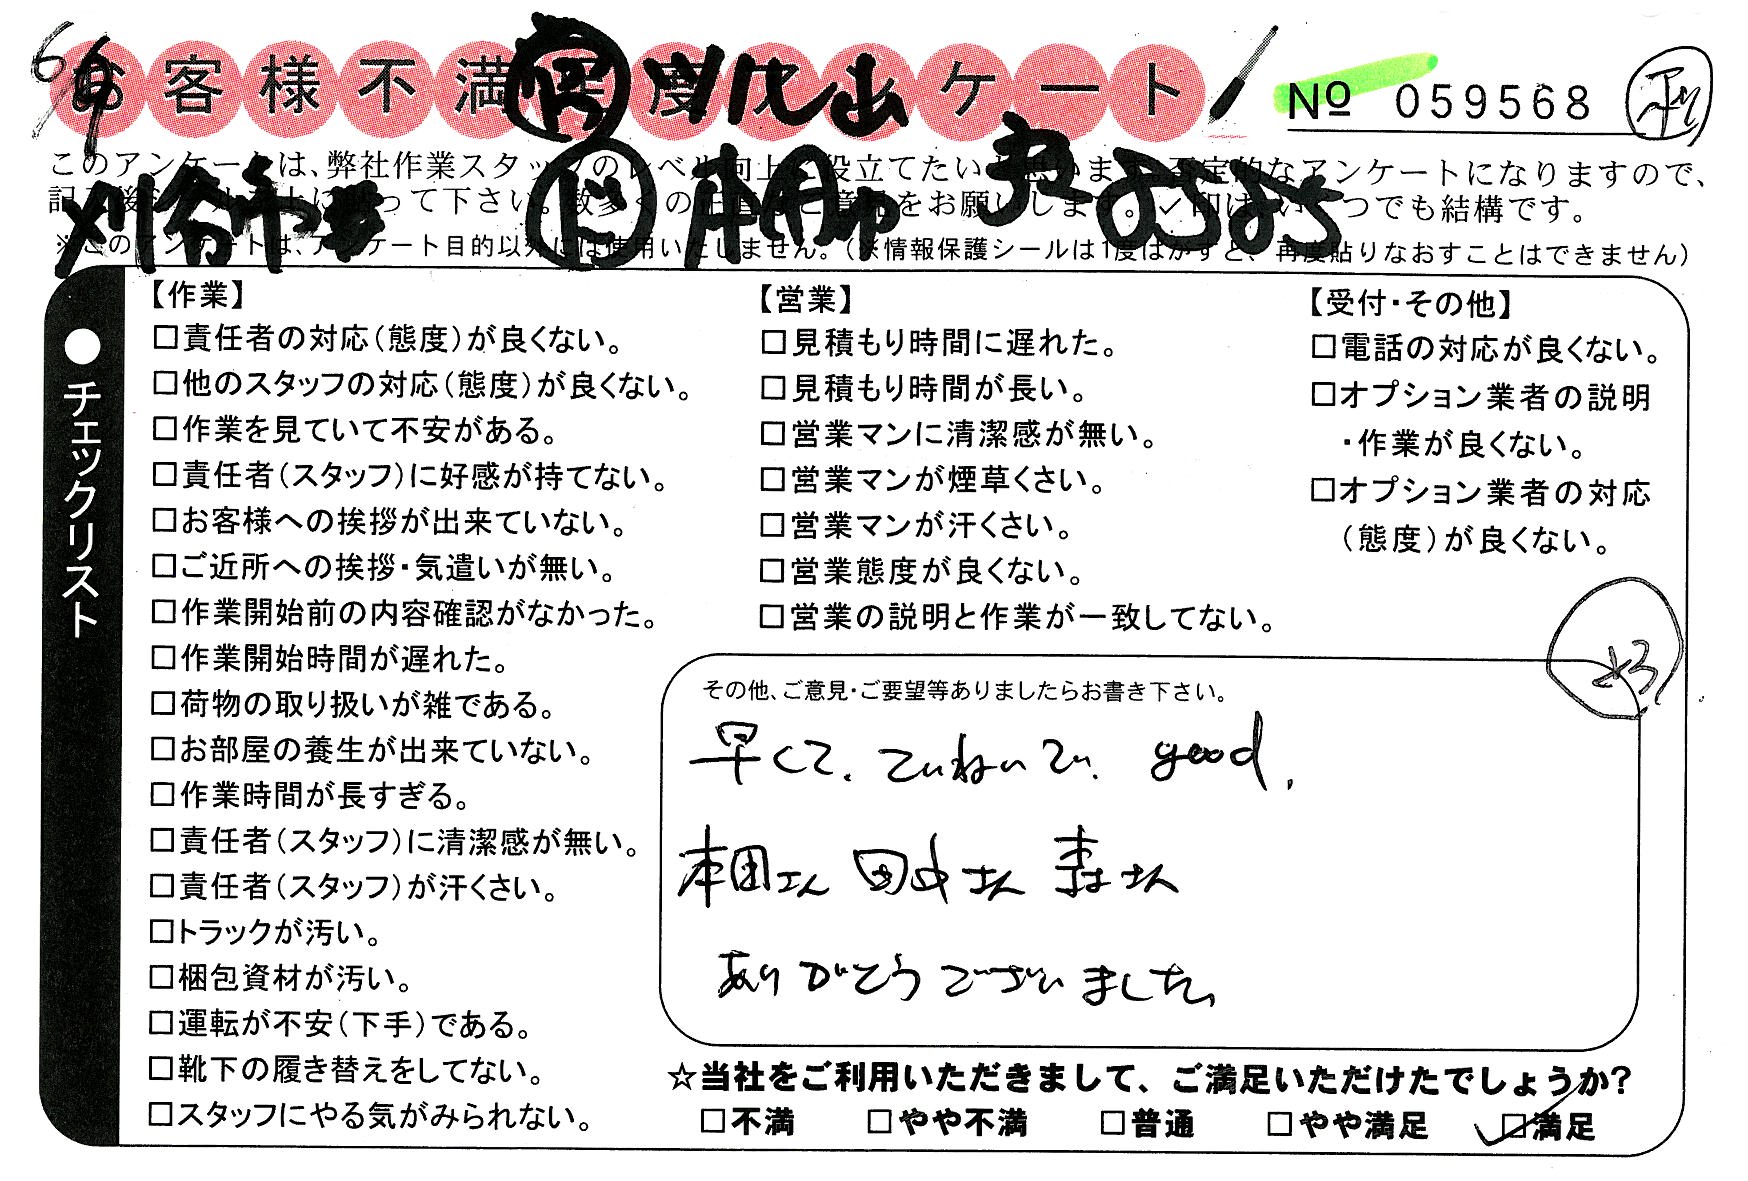 お客様不満足度アンケート
№ 059568
このアンケートは、弊社作業スタッフのレベル向上に役立てたいと思います。否定的なアンケートになりますので、
記入後シールを上に貼って下さい。数多くの正直なご意見をお願いします。✓印はいくつでも結構です。
刈谷市
※このアンケートは、アンケート目的以外には使用いたしません。（※情報保護シールは1度はがすと、再度貼りなおすことはできません）
●チェックリスト
【作業】
□責任者の対応（態度）が良くない。
□他のスタッフの対応（態度）が良くない。
□作業を見ていて不安がある。
□責任者（スタッフ）に好感が持てない。
□お客様への挨拶が出来ていない。
□ご近所への挨拶・気遣いが無い。
□作業開始前の内容確認がなかった。
□作業開始時間が遅れた。
□荷物の取り扱いが雑である。
□お部屋の養生が出来ていない。
□作業時間が長すぎる。
□責任者（スタッフ）に清潔感が無い。
□責任者（スタッフ）が汗くさい。
□トラックが汚い。
□梱包資材が汚い。
□運転が不安（下手）である。
□靴下の履き替えをしてない。
□スタッフにやる気がみられない。
【営業】
□見積もり時間に遅れた。
□見積もり時間が長い。
□営業マンに清潔感が無い。
□営業マンが煙草くさい。
□営業マンが汗くさい。
□営業態度が良くない。
□営業の説明と作業が一致してない。
【受付・その他】
□電話の対応が良くない。
□オプション業者の説明
・作業が良くない。
□オプション業者の対応
（態度）が良くない。
その他、ご意見・ご要望等ありましたらお書き下さい。
早くて、ていねいで、good.
本田さん 田中さん 森さん
ありがとうございました。
☆当社をご利用いただきまして、ご満足いただけたでしょうか？
□不満 □やや不満 □普通 □やや満足 ☑満足